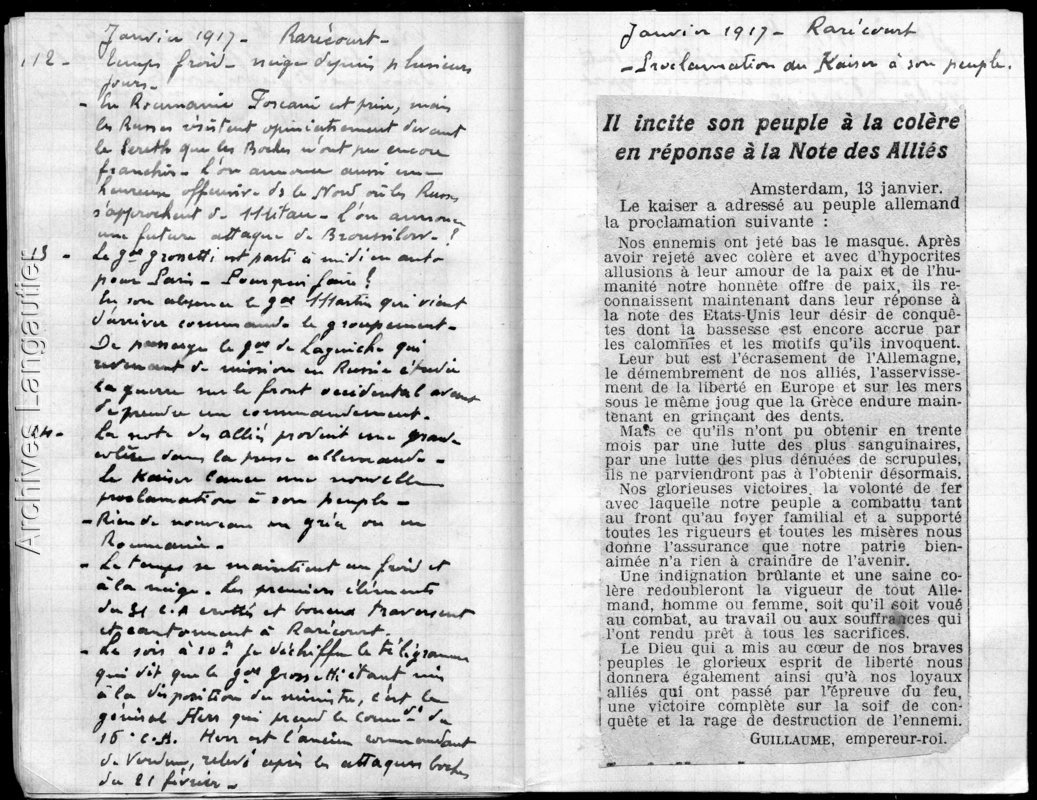 Janvier 1917 - Rarécourt -
12 - Temps froid - neige depuis plusieurs
jours -
- En Roumanie Focsani est pris, mais
les Russes résistent opiniatrement devant
le Sereth que les Boches n'ont pu encore
franchir - L'on annonce aussi une
heureuse offensive de le Nord où les Russes
s'approchent de Mitau - L'on annonce
une future attaque de Broussilow - !
13 - Le gal Grossetti est parti à midi en auto
pour Paris - Pourquoi faire ?
En son absence le gal Martin qui vient
d'arriver commande le groupement -
De passage le gal de Laguiche qui
revenant de mission en Russie étudie
la guerre sur le front occidental avant
de prendre un commandement.
14 - La note des alliés produit une grande
colère dans la presse allemande -
Le Kaiser lance une nouvelle
proclamation à son peuple -
- Rien de nouveau en grèce ou en
Roumanie -
- Le temps se maintient au froid et
à la neige - Les premiers éléments
du 31 C.A crottés et boueux traversent
et cantonnent à Rarécourt.
- Le soir à 20h je déchiffre le télégramme
qui dit que le gal Grossetti étant mis
à la disposition du ministre, c'est le
général Herr qui prend le Commdt du
16e C.A. Herr est l'ancien commandant
de Verdun, relevé après les attaques boches
du 21 février -
Archives Langautier
Janvier 1917 - Rarécourt
- Proclamation du Kaiser à son peuple.
Il incite son peuple à la colère
en réponse à la Note des Alliés
Amsterdam, 13 janvier.
Le kaiser a adressé au peuple allemand
la proclamation suivante :
Nos ennemis ont jeté bas le masque. Après
avoir rejeté avec colère et avec d'hypocrites
allusions à leur amour de la paix et de l'hu-
manité notre honnête offre de paix, ils re-
connaissent maintenant dans leur réponse à
la note des Etats-Unis leur désir de conquê-
tes dont la bassesse est encore accrue par
les calomnies et les motifs qu'ils invoquent.
Leur but est l'écrasement de l'Allemagne,
le démembrement de nos alliés, l'asservisse-
ment de la liberté en Europe et sur les mers
sous le même joug que la Grèce endure main-
tenant en grinçant des dents.
Mais ce qu'ils n'ont pu obtenir en trente
mois par une lutte des plus sanguinaires,
par une lutte des plus dénuées de scrupules,
ils ne parviendront pas à l'obtenir désormais.
Nos glorieuses victoires, la volonté de fer
avec laquelle notre peuple a combattu tant
au front qu'au foyer familial et a supporté
toutes les rigueurs et toutes les misères nous
donne l'assurance que notre patrie bien-
aimée n'a rien à craindre de l'avenir.
Une indignation brûlante et une saine co-
lère redoubleront la vigueur de tout Alle-
mand, homme ou femme, soit qu'il soit voué
au combat, au travail ou aux souffrances qui
l'ont rendu prêt à tous les sacrifices.
Le Dieu qui a mis au cœur de nos braves
peuples le glorieux esprit de liberté nous
donnera également ainsi qu'à nos loyaux
alliés qui ont passé par l'épreuve du feu,
une victoire complète sur la soif de con-
quête et la rage de destruction de l'ennemi.
GUILLAUME, empereur-roi.